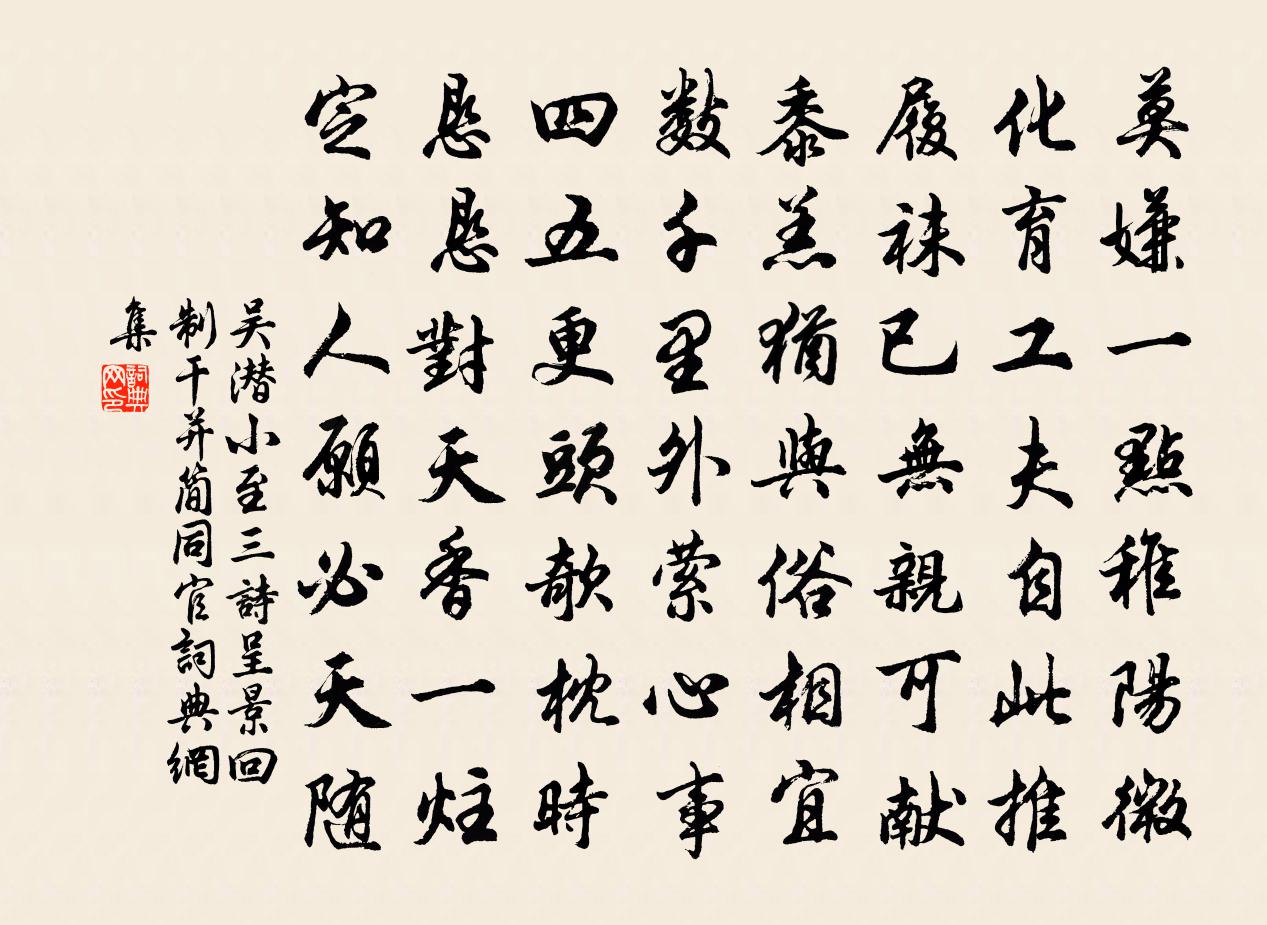 莫嫌一點稚陽微
化育工夫自此推
履袜已無親可献
黍羔猶與俗相宜
数千里外萦心事
四五更頭欹枕時
恳恳對天香一炷
定知人願必天随
吴潜小至三詩呈景回
制干并简同官詞典網
集
詞典網印